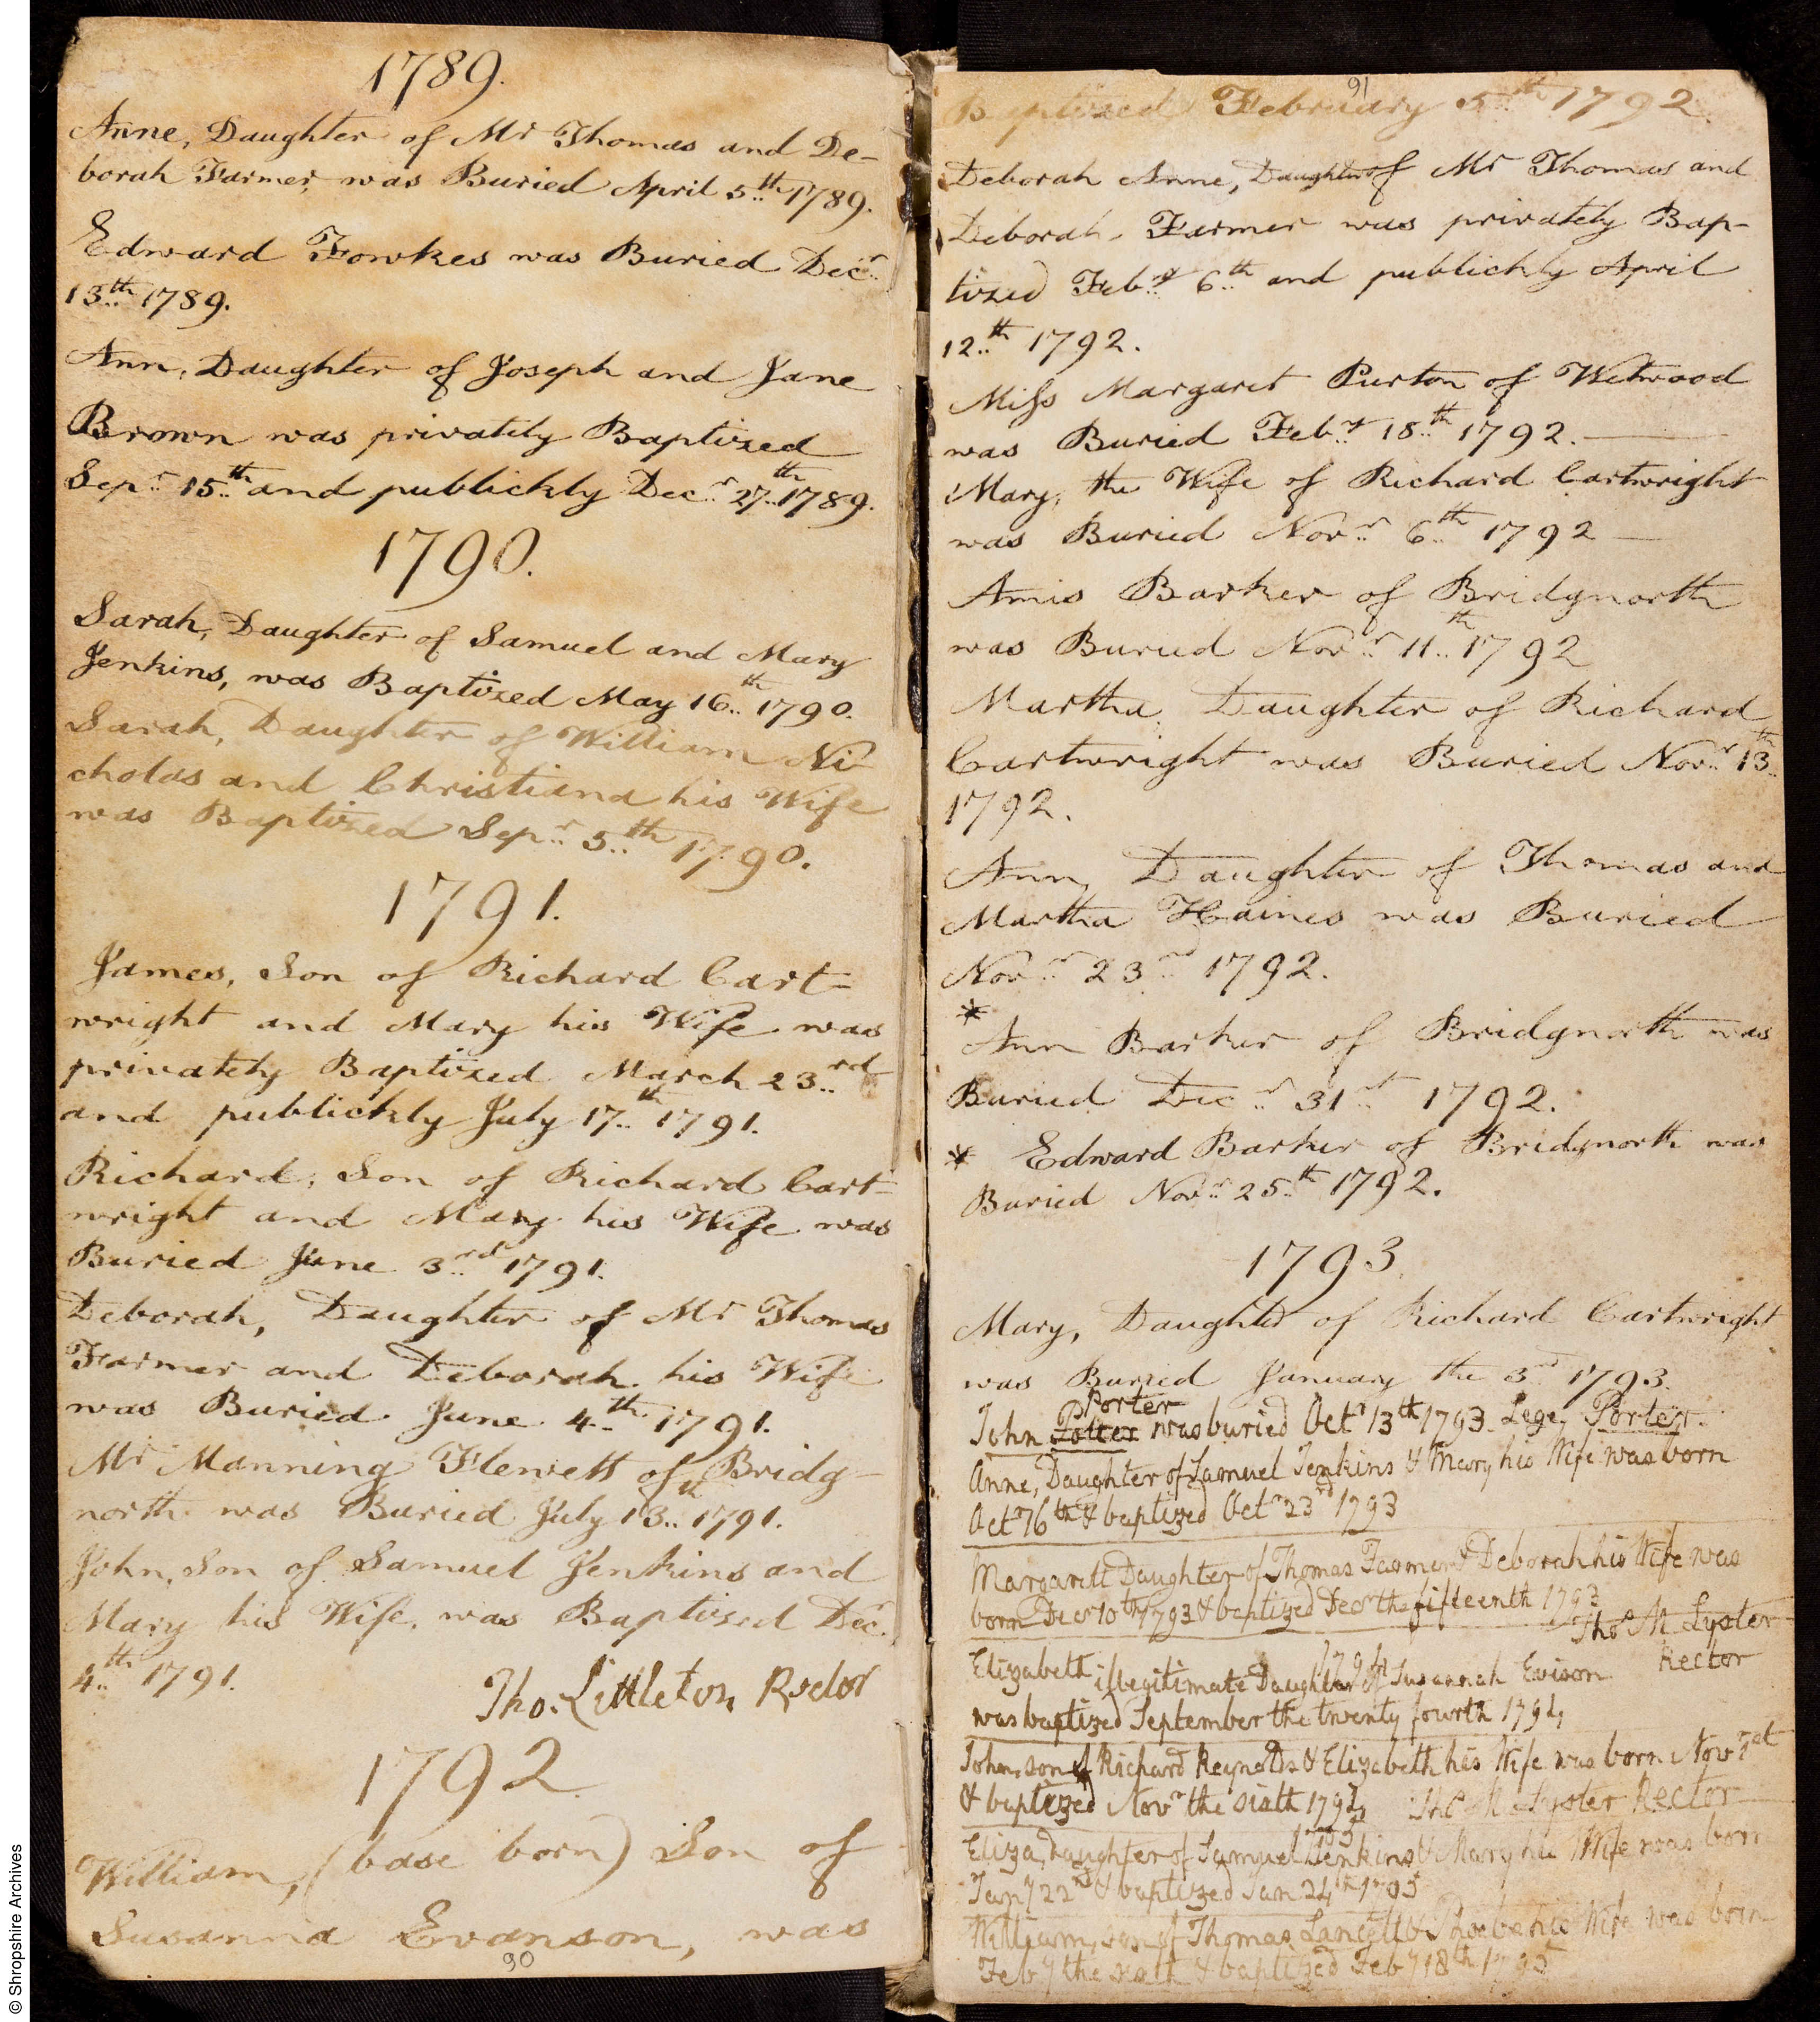 1789.
Anne, Daughter of Mr Thomas and De-
borah Farmer, was Buried April 5th 1789.
Edward Fowkes was Buried Decr
13th 1789.
Ann, Daughter of Joseph and Jane
Brown was privately Baptized
Sepr 15th and publickly Decr 27th 1789.
1790.
Sarah, Daughter of Samuel and Mary
Jenkins, was Baptized May 16th 1790.
Sarah, Daughter of William Ni-
cholas and Christiana his Wife
was Baptized Sepr 5th 1790.
1791.
James, Son of Richard Cart=
wright and Mary his Wife was
privately Baptized March 23rd
and publickly July 17th 1791.
Richard, Son of Richard Cart=
wright and Mary his Wife was
Buried June 3rd 1791.
Deborah, Daughter of Mr Thomas
Farmer and Deborah his Wife
was Buried June 4th 1791.
Mr Manning Flewett of Bridg-
north was Buried July 13th 1791.
John, Son of Samuel Jenkins and
Mary his Wife, was Baptized Decr
4th 1791.
Tho. Littleton Rector
1792
William, (base born) Son of
Susanna Evanson, was
90
91
Baptized February 5th 1792.
Deborah Anne, Daughter of Mr Thomas and
Deborah Farmer was privately Bap-
tized Feby 6th and publickly April
12th 1792.
Miss Margaret Purton of Wetwood
was Buried Feby 18th 1792.
Mary, the Wife of Richard Cartwright
was Buried Novr 6th 1792
Amis Barker of Bridgnorth
was Buried Novr 11th 1792
Martha, Daughter of Richard
Cartwright was Buried Novr 13th
1792.
Ann, Daughter of Thomas and
Martha Haines was Buried
Novr 23rd 1792.
*
Ann Barker of Bridgnorth was
Buried Decr 31st 1792.
* Edward Barker of Bridgnorth was
Buried Novr 25th 1792.
1793
Mary, Daughter of Richard Cartwright
was Buried January the 3rd 1793.
Porter
John Potter was buried Octr 13th 1793. Lege, Porter.
Anne, Daughter of Samuel Jenkins & Mary his Wife was born
Octr 16th & baptized Octr 23rd 1793
Margarett Daughter of Thomas Farmer & Deborah his Wife was
born Decr 10th 1793 & baptized Decr the fifteenth 1793
Thos M Lyster
Rector
1794
Elizabeth illegitimate Daughter of Susannah Evison
was baptized September the twenty fourth 1794
John, son of Richard Reynolds & Elizabeth his Wife was born Novr 1st
& baptized Novr the sixth 1794 Thos M Lyster Rector
1795
Eliza, Daughter of Samuel Jenkins & Mary his Wife was born
Jany 22nd & baptized Jan 24th 1795
William, son of Thomas & Phoebe his Wife was born
Feby the sixth & baptized Feby 18th 1795
© Shropshire Archives